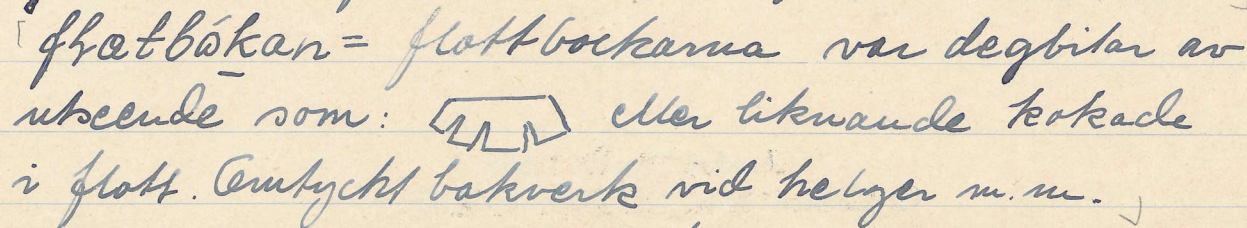 [flatbåkan = flottbockarna var degbitar av
utseende som: eller liknande kokade
i flott. Omtyckt bakverk vid helger m.m.]